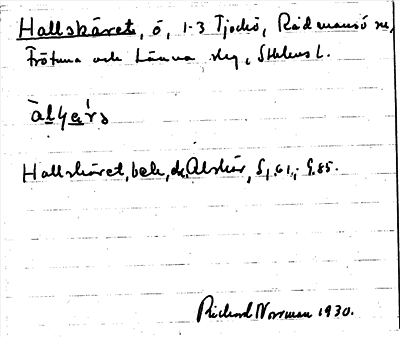 Hallskäret, ö, 1-3 Tjockö, Rådmansö sn,
Frötuna och Länna skg, Sthlms l.
Hallskäret, bek,
S, 61; G.85.
Rickard Norrman 1930.